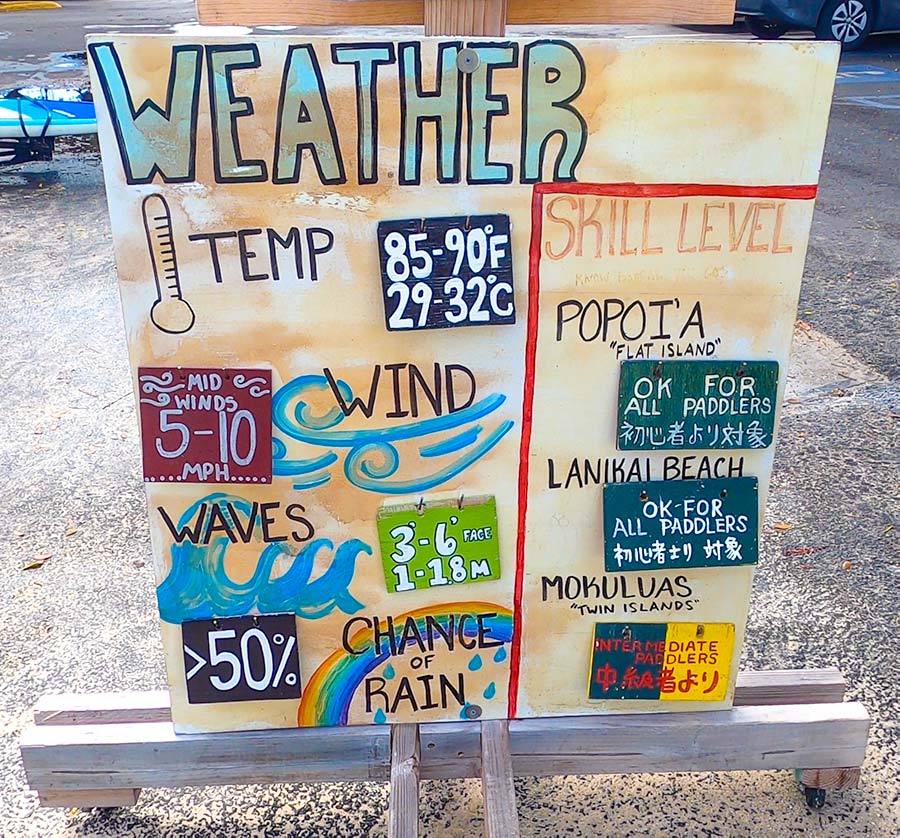 WEATHER
TEMP
85-90°F
29-32°C
MID
WINDS
5-10
MPH
WIND
WAVES
3'-6' FACE
1-1.8M
>50%
CHANCE
OF
RAIN
SKILL LEVEL
KNOW BEFORE YOU GO
POPOI'A
"FLAT ISLAND"
OK FOR
ALL PADDLERS
初心者より対象
LANIKAI BEACH
OK FOR
ALL PADDLERS
初心者より 対象
MOKULUAS
"TWIN ISLANDS"
INTERMEDIATE
PADDLERS
中級者より